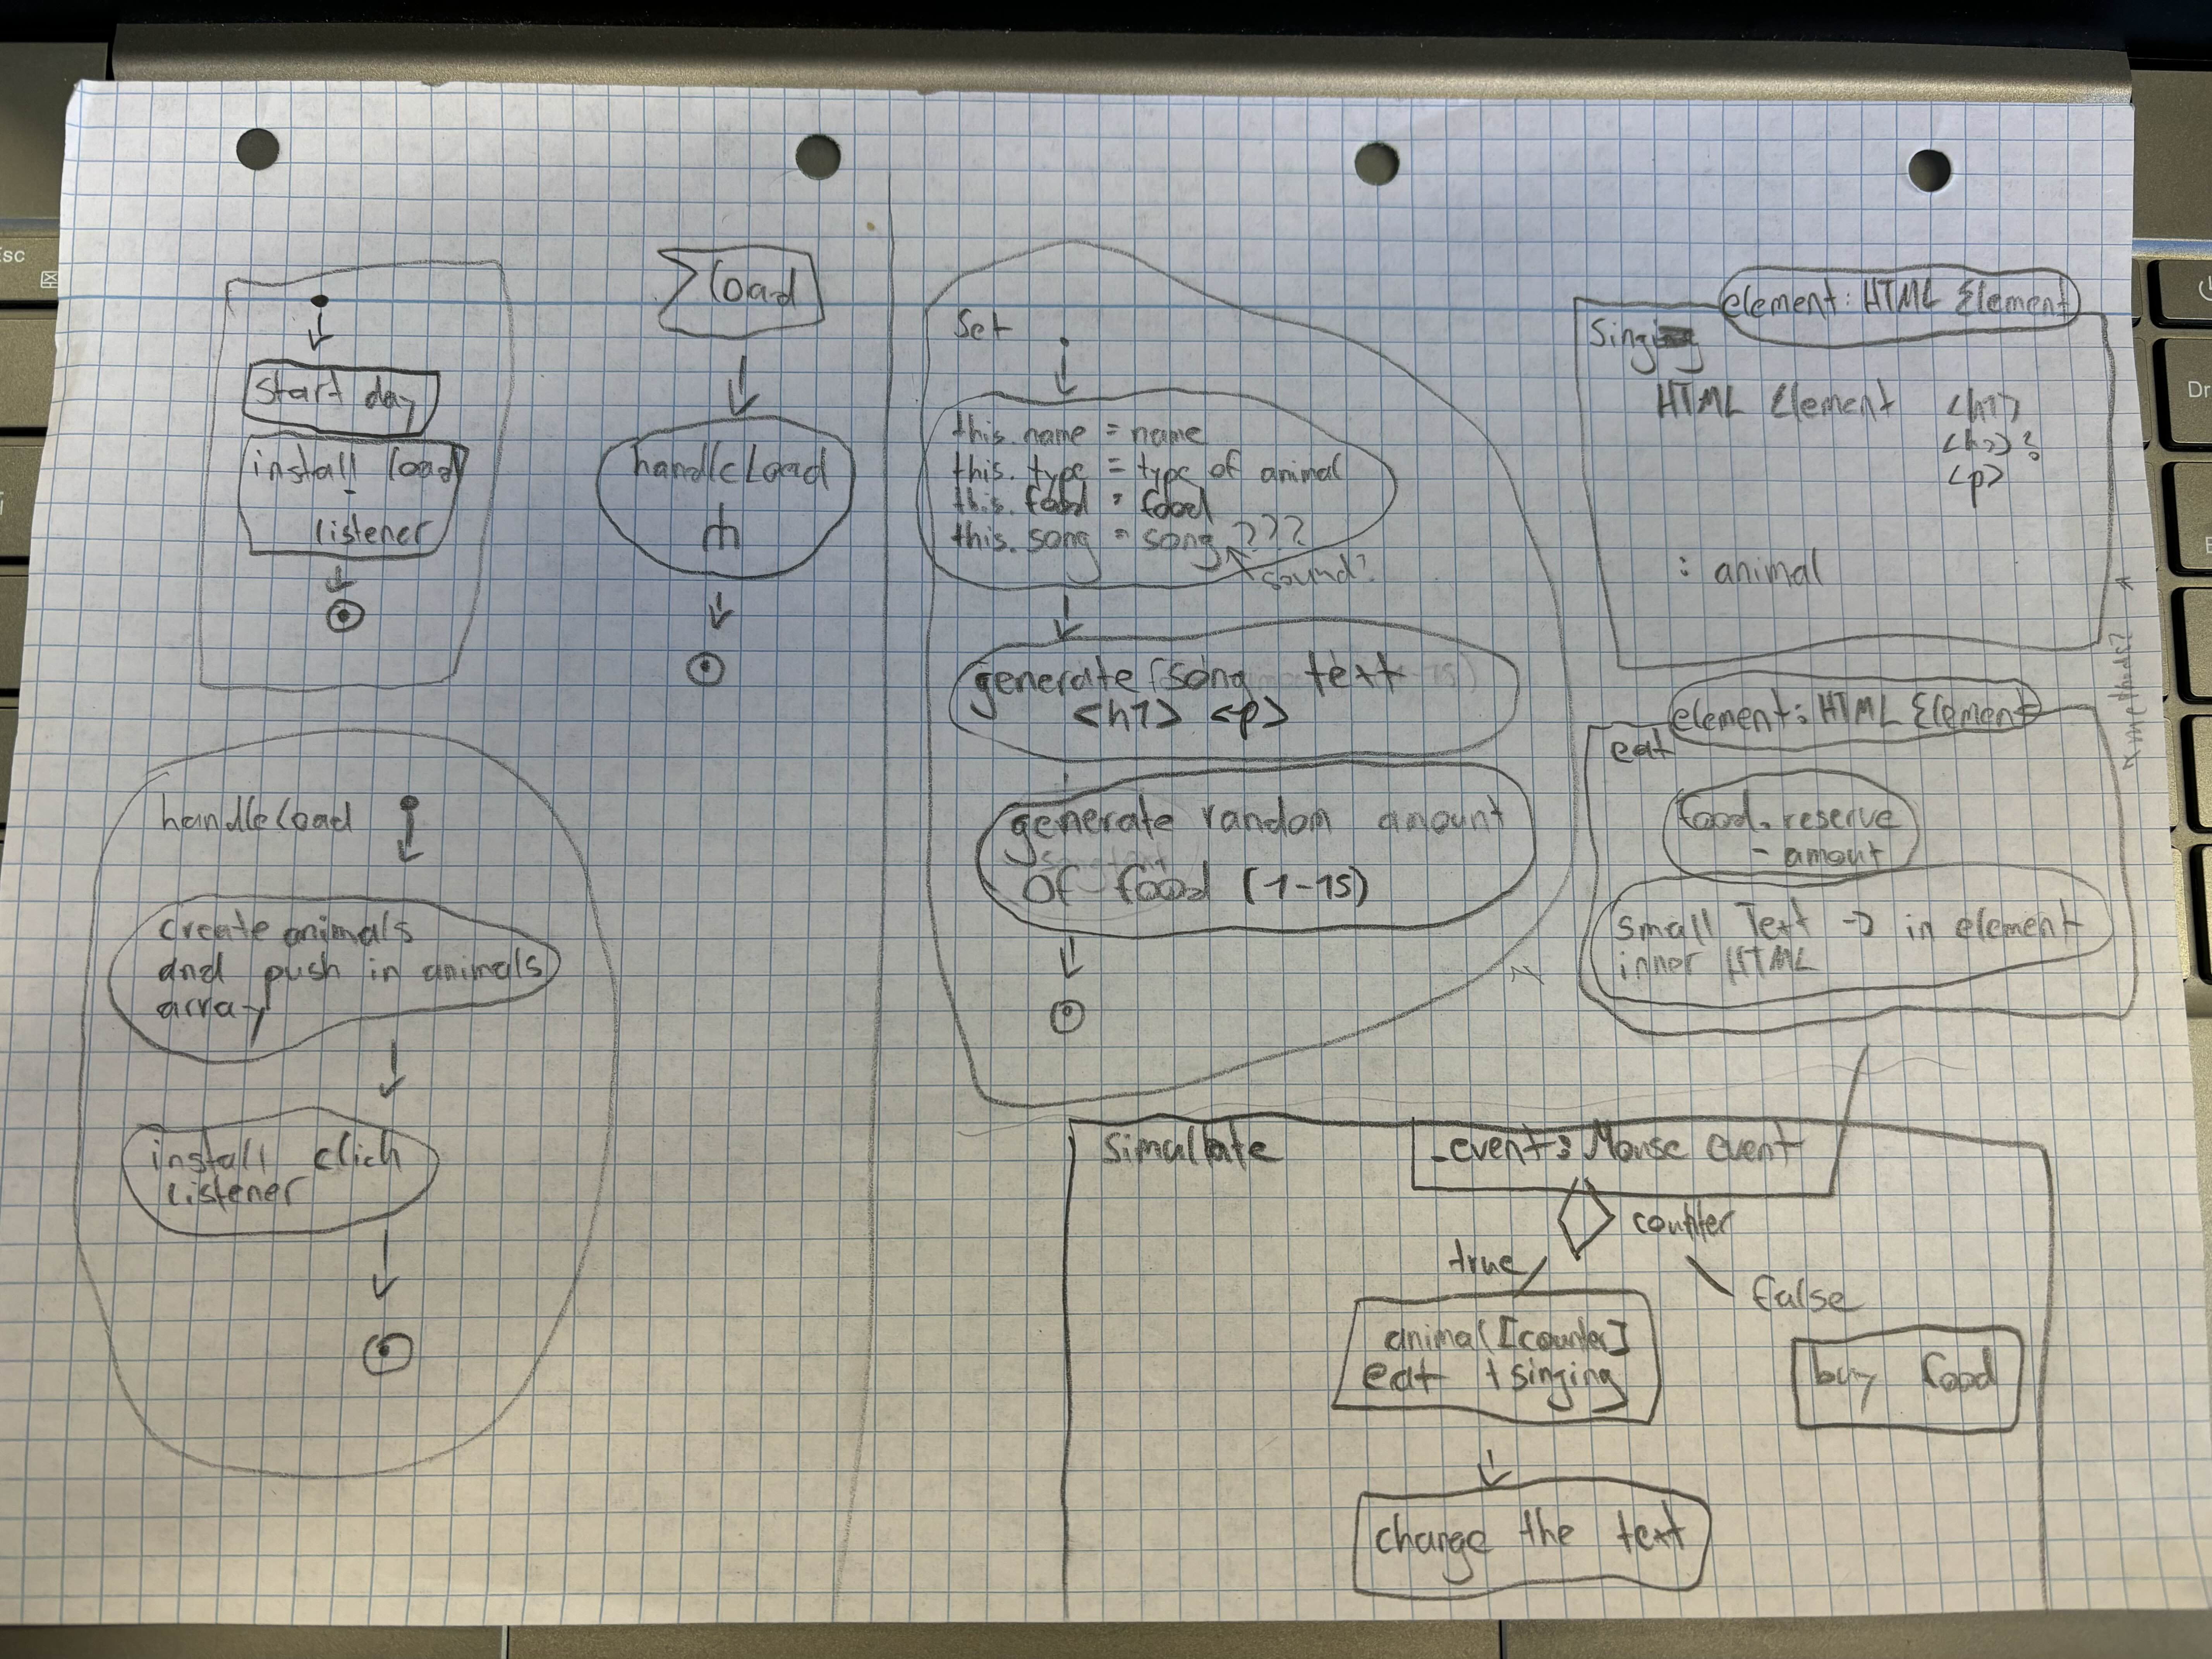 Esc
Start day
install load
listener
load
handleLoad
handleload
create animals
and push in animals
array
install click
listener
Set
this.name = name
this.type = type of animal
this.food = food
this.song = song ???
sound?
generate song text
<h1> <p>
generate random amount
of food (1-15)
element: HTML Element
Singing
HTML Element <h1>
<h2>?
<p>
: animal
methods?
element: HTML Element
eat
food.reserve
- amout
small Text -> in element
inner HTML
Simullate
_event: Mouse event
counter
true
false
animal[counter]
eat + singing
buy food
change the text